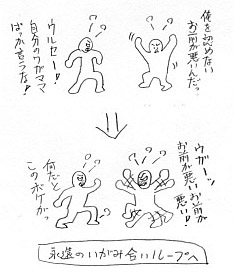 俺を認めない
お前が悪いんだっ
ウルセー!
自分のワガママ
ばっか言うな!
ウガーッ
お前が悪いお前が
悪い!
何だと
このボケがっ
永遠のいがみ合いループへ